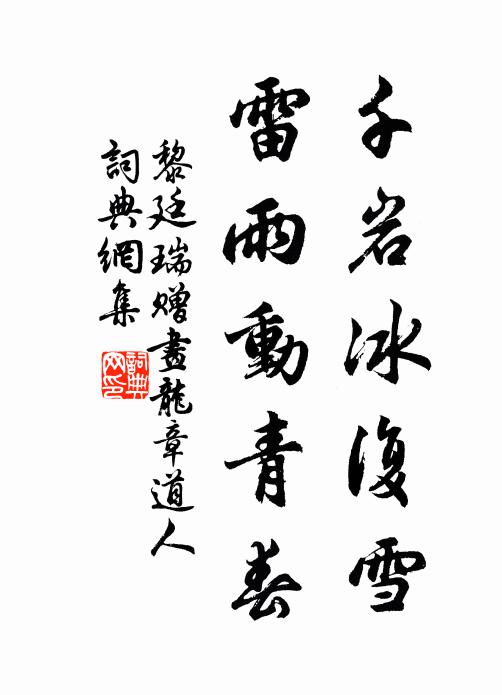 千岩冰復雪
雷雨動青春
黎廷瑞赠畫龍章道人
詞典網集
詞典網印